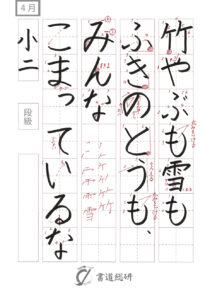 竹やぶも雪も
ふきのとうも、
みんな
こまっているな
4月
小二
段級
書道総研